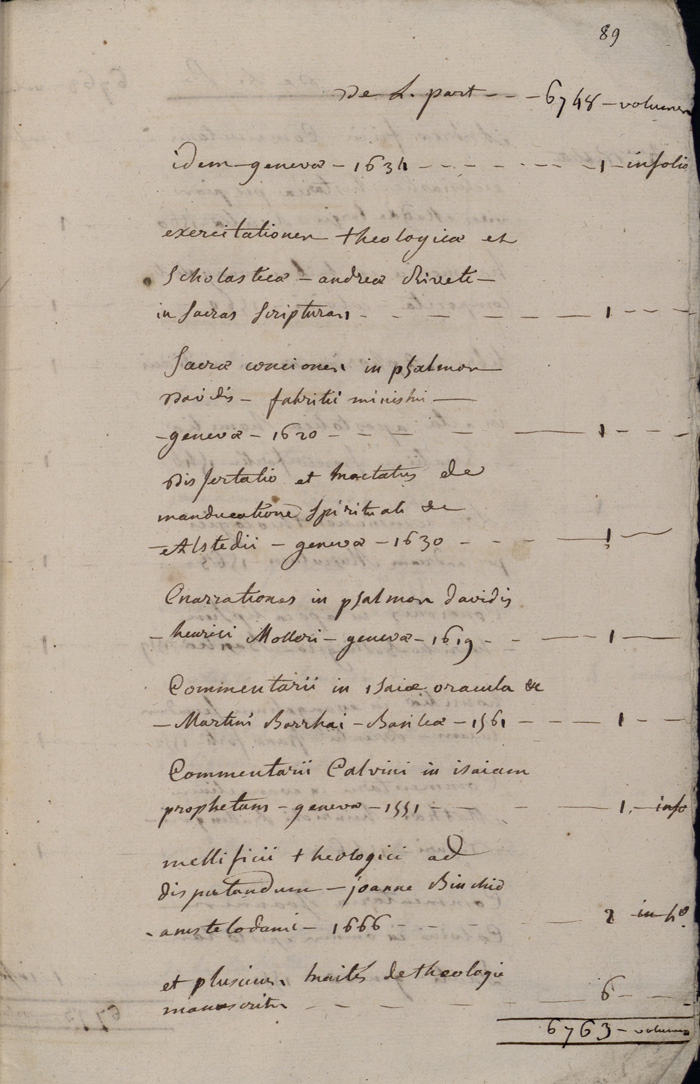 89
De L. part - - - 6748 - volumes
idem geneva - 1634 - - - - - 1 - infolio
exercitationes theologicæ et
Scholasticæ - andreæ Riveti -
in Sacras Scripturas - - - 1 - - -
Sacræ conciones in psalmos
Davidis - fabritii ministri -
- genevæ - 1620 - - - - - 1 - - -
Dissertatio et tractatus de
manducatione Spirituali &c
Alstedii - genevæ - 1630 - - - 1
Enarrationes in psalmos davidis
- henrici Molleri - genevæ - 1619 - - 1 -
Commentarii in isaiæ oracula &c
- Martini Borrhai - Basileæ - 1561 - - - 1 - -
Commentarii Calvini in isaiam
prophetam - genevæ - 1551 - - - 1. - info
mellificii theologici ad
disputandum - joanne
- amstelodami - 1666 - - - 2 in 4º.
et plusieurs traités de theologie
manuscrits - - - - 6 -
6763 - volumes